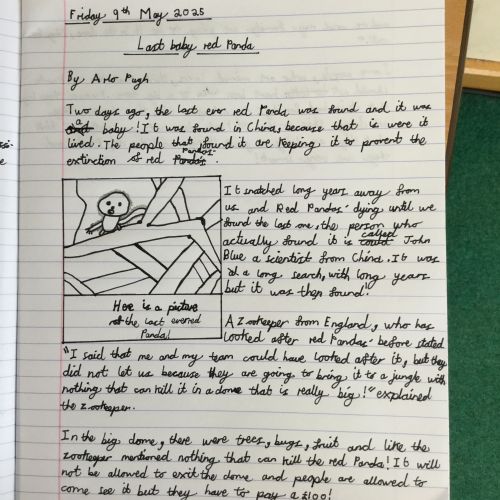 Friday 9th May 2025
Last baby red Panda
By Arlo Pugh
Two days ago, the last ever red Panda was found and it was
a baby! It was found in China, because that is were it
lived. The people that found it are keeping it to prevent the
extinction of red Pandas.
It snatched long years away from
us and Red Pandas dying until we
found the last one, the person who
actually found it is called John
Blue a scientist from China. It was
a long search, with long years
but it was then found!
Here is a picture
of the last ever red
Panda!
A Zookeeper from England, who has
looked after red Pandas before stated
"I said that me and my team could have looked after it, but they
did not let us because they are going to bring it to a jungle with
nothing that can kill it in a dome that is really big!" explained
the zookeeper.
In the big dome, there were trees, bugs, fruit and like the
zookeeper mentioned nothing that can kill the red Panda! It will
not be allowed to exit the dome and people are allowed to
come see it but they have to pay a £100!